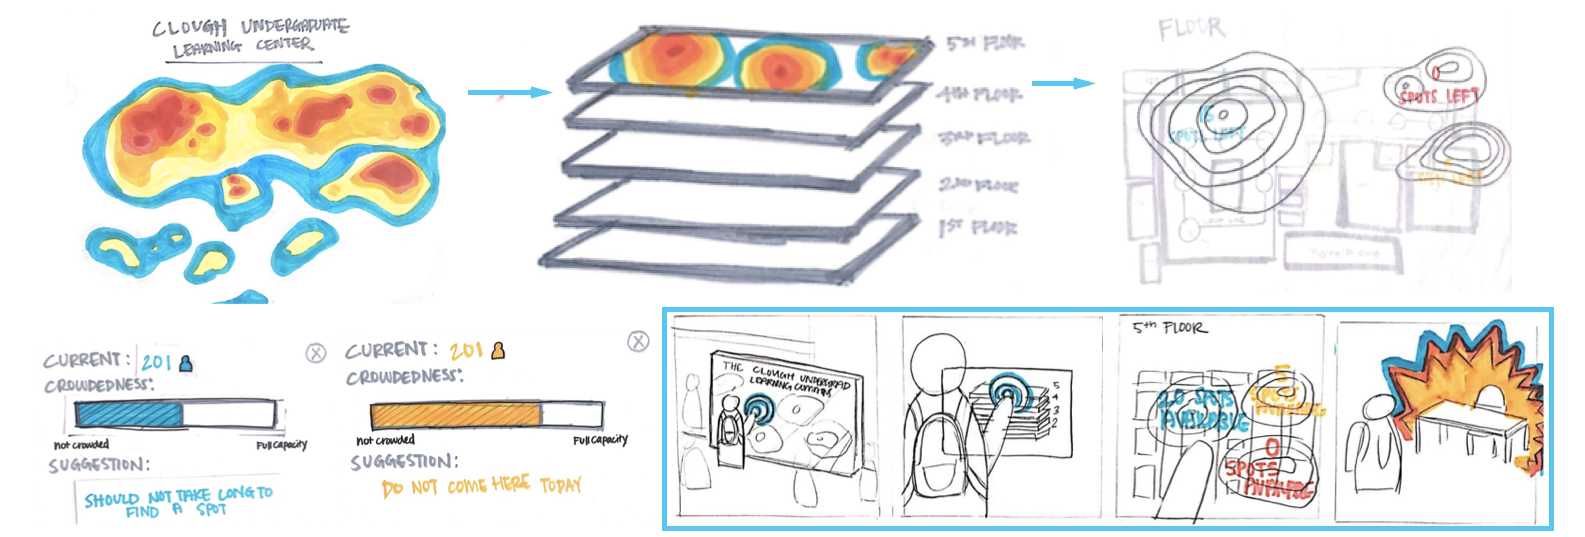 CLOUGH UNDERGRADUATE
LEARNING CENTER
5TH FLOOR
4TH FLOOR
3RD FLOOR
2ND FLOOR
1ST FLOOR
FLOOR
15
SPOTS LEFT
0
SPOTS LEFT
SPOTS LEFT
CURRENT: 201
CROWDEDNESS:
not crowded
Full capacity
SUGGESTION:
SHOULD NOT TAKE LONG TO
FIND A SPOT
CURRENT: 201
CROWDEDNESS:
not crowded
Full capacity
SUGGESTION:
DO NOT COME HERE TODAY
THE CLOUGH UNDERGRAD
LEARNING COMMONS
5
4
3
2
5TH FLOOR
SPOTS
AVAILABLE
5
SPOTS
AVAILABLE
0
SPOTS
AVAILABLE